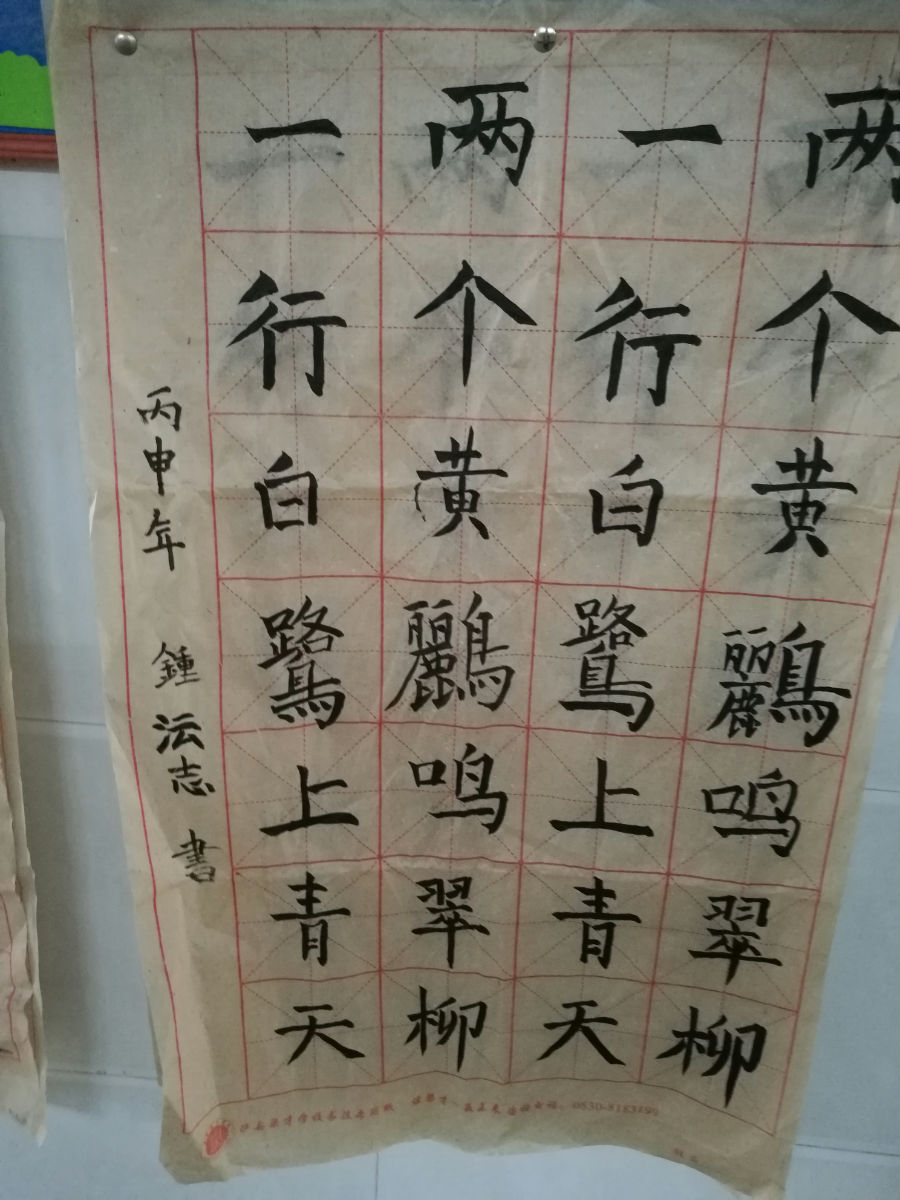 两个黄鹂鳴翠柳
一行白鷺上青天
两个黄鸝鸣翠柳
一行白鷺上青天
丙申年 鍾沄志 書
0530-8183499